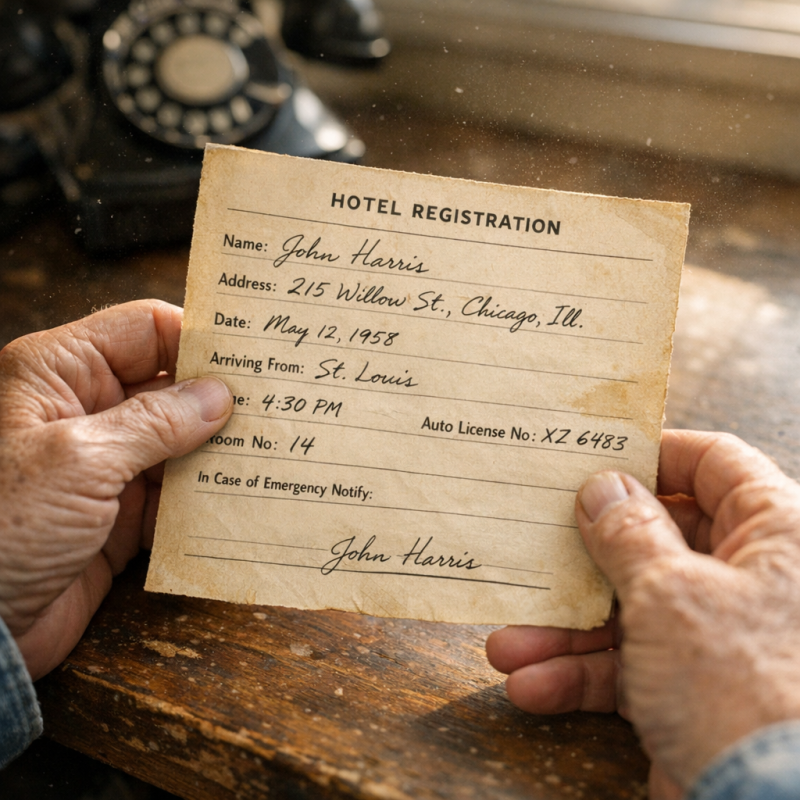 HOTEL REGISTRATION
Name: John Harris
Address: 215 Willow St., Chicago, Ill.
Date: May 12, 1958
Arriving From: St. Louis
me: 4:30 PM Auto License No: XZ 6483
oom No: 14
In Case of Emergency Notify:
John Harris